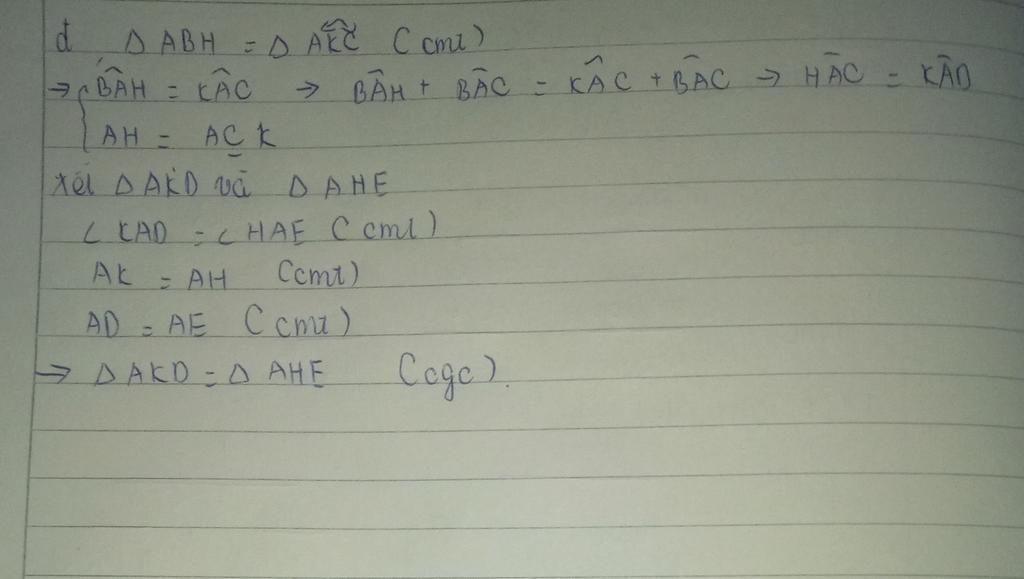 d ΔABH = ΔAKC (cmt)
→ { BÂH = KÂC → BÂH + BÂC = KÂC + BÂC → HÂC = KÂD
AH = AC K
Xét ΔAKD và ΔAHE
∠KAD = ∠HAE (cmt)
AK = AH (cmt)
AD = AE (cmt)
→ ΔAKD = ΔAHE (cgc).